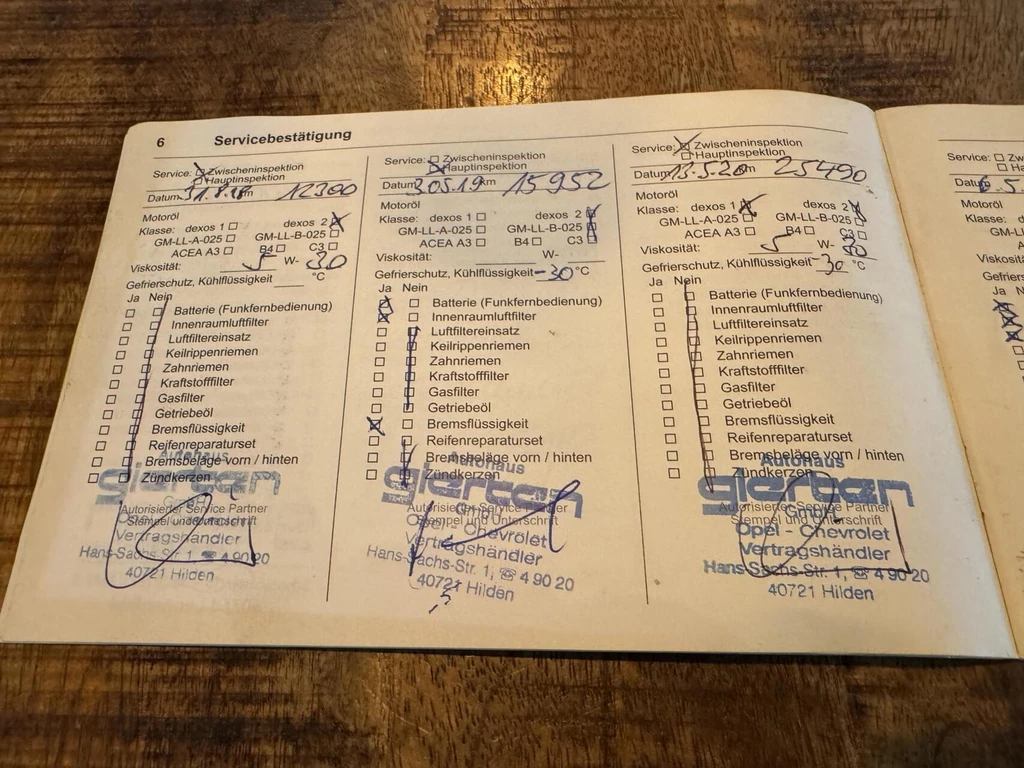 6 Servicebestätigung
Service: Zwischeninspektion
Hauptinspektion
Datum 31.8.18 km 12300
Motoröl
Klasse: dexos 1 dexos 2
GM-LL-A-025 GM-LL-B-025
ACEA A3 B4 C3
Viskosität: 5 W- 30
Gefrierschutz, Kühlflüssigkeit °C
Ja Nein
Batterie (Funkfernbedienung)
Innenraumluftfilter
Luftfiltereinsatz
Keilrippenriemen
Zahnriemen
Kraftstofffilter
Gasfilter
Getriebeöl
Bremsflüssigkeit
Reifenreparaturset
Bremsbeläge vorn / hinten
Zündkerzen
Autohaus
gierten
Autorisierter Service Partner
Stempel und Unterschrift
Vertragshändler
Hans-Sachs-Str. 1, ☎ 4 90 20
40721 Hilden
Service: Zwischeninspektion
Hauptinspektion
Datum 3.05.19 km 15952
Motoröl
Klasse: dexos 1 dexos 2
GM-LL-A-025 GM-LL-B-025
ACEA A3 B4 C3
Viskosität: W-
Gefrierschutz, Kühlflüssigkeit -30 °C
Ja Nein
Batterie (Funkfernbedienung)
Innenraumluftfilter
Luftfiltereinsatz
Keilrippenriemen
Zahnriemen
Kraftstofffilter
Gasfilter
Getriebeöl
Bremsflüssigkeit
Reifenreparaturset
Bremsbeläge vorn / hinten
Zündkerzen
Autohaus
gierten
Autorisierter Service Partner
GmbH
Stempel und Unterschrift
Opel - Chevrolet
Vertragshändler
Hans-Sachs-Str. 1, ☎ 4 90 20
40721 Hilden
Service: Zwischeninspektion
Hauptinspektion
Datum 13.5.20 km 25490
Motoröl
Klasse: dexos 1 dexos 2
GM-LL-A-025 GM-LL-B-025
ACEA A3 B4 C3
Viskosität: 5 W- 30
Gefrierschutz, Kühlflüssigkeit -30 °C
Ja Nein
Batterie (Funkfernbedienung)
Innenraumluftfilter
Luftfiltereinsatz
Keilrippenriemen
Zahnriemen
Kraftstofffilter
Gasfilter
Getriebeöl
Bremsflüssigkeit
Reifenreparaturset
Bremsbeläge vorn / hinten
Zündkerzen
Autohaus
gierten
Autorisierter Service Partner
GmbH
Stempel und Unterschrift
Opel - Chevrolet
Vertragshändler
Hans-Sachs-Str. 1, ☎ 4 90 20
40721 Hilden
Service:
Motoröl
Klasse:
Ja